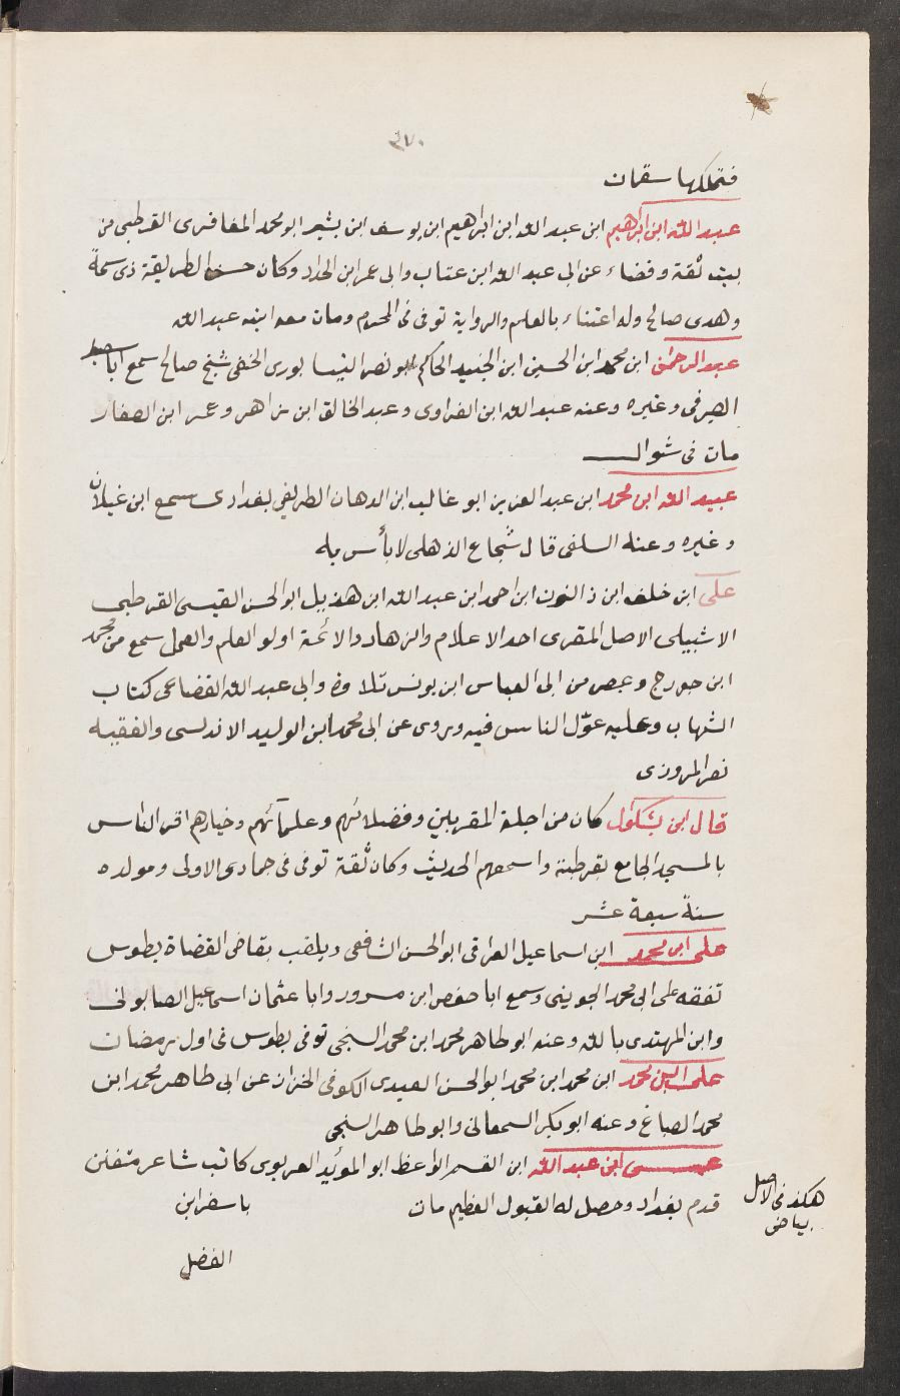 ٤٧٠
فتملكها سقمان
عبد الله ابن ابراهيم ابن عبد الله ابن ابراهيم ابن يوسف ابن بشير ابو محمد المغافرى القرطبي من
بيت ثقة وفضاء عن ابى عبد الله ابن عتاب وابى عمر ابن الحداد وكان حسن الطريقة ذى سمة
وهدى صالح وله اعتناء بالعلم والرواية توفى فى المحرم ومات معه ابنه عبد الله
عبد الرحمن ابن محمد ابن الحسين ابن الجنيد الحاكم ابو نصر النيسابورى الحنفى شيخ صالح سمع ابا
الصيرفى وغيره وعنه عبد الله ابن الفراوى وعبد الخالق ابن زاهر وعمر ابن الصفار
مات فى شوال
عبيد الله ابن محمد ابن عبد العزيز ابو غالب ابن الدهان الطريفي بغدادى سمع ابن غيلان
وغيره وعنه السلفى قال شجاع الذهلى لا بأس به
على ابن خلف ابن ذ النون ابن احمد ابن عبد الله ابن هذيل ابو الحسن القيسى القرطبى
الاشبيلى الاصل المقرى احد الاعلام والزهاد والائمة اولو العلم والعمل سمع من محمد
ابن جورج وبمصر من ابى العباس ابن يونس تلاوة وابى عبد الله القضاعى كتاب
الشهاب وعليه عوّل الناس فيه ويروى عن ابى محمد ابن الوليد الاندلسى والفقيه
نصر المروزى
قال ابن بشكوال كان من اجلة المقريين وفضلائهم وعلمآئهم وخيارهم اقرا الناس
بالمسجد الجامع بقرطبة واسمعهم الحديث وكان ثقة توفى فى جمادى الاولى ومولده
سنة سبعة عشر
على ابن محمد ابن اسماعيل العراقى ابو الحسن الشافعى ويلقب بقاضى القضاة بطوس
تفقه على ابى محمد الجوينى وسمع ابا حفص ابن مسرور وابا عثمان اسماعيل الصابونى
وابن المهتدى بالله وعنه ابو طاهر محمد ابن محمد السنجى توفى بطوس فى اول رمضان
على ابن محمد ابن محمد ابن محمد ابو الحسن العبدى الكوفى الخزان عن ابى طاهر محمد ابن
محمد الصباغ وعنه ابو بكر السمعانى وابو طاهر السنجى
عيسى ابن عبد الله ابن القسم الواعظ ابو المؤيد العربوى كاتب شاعر متفنن
قدم بغداد وحصل له القبول العظيم مات باسفراين
هكذ فى الاصل
بياض
الفضل